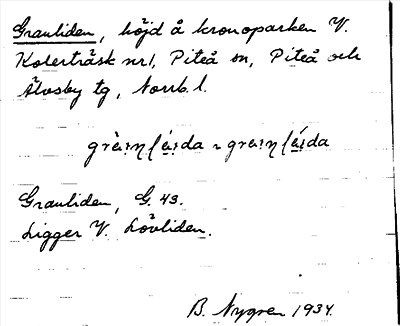 Granliden, höjd å kronoparken V.
Koterträsk nr 1, Piteå sn, Piteå och
Älvsby tg, Norrb. l.
Granliden, G. 43.
Ligger V. Lövliden.
B. Nygren 1934.